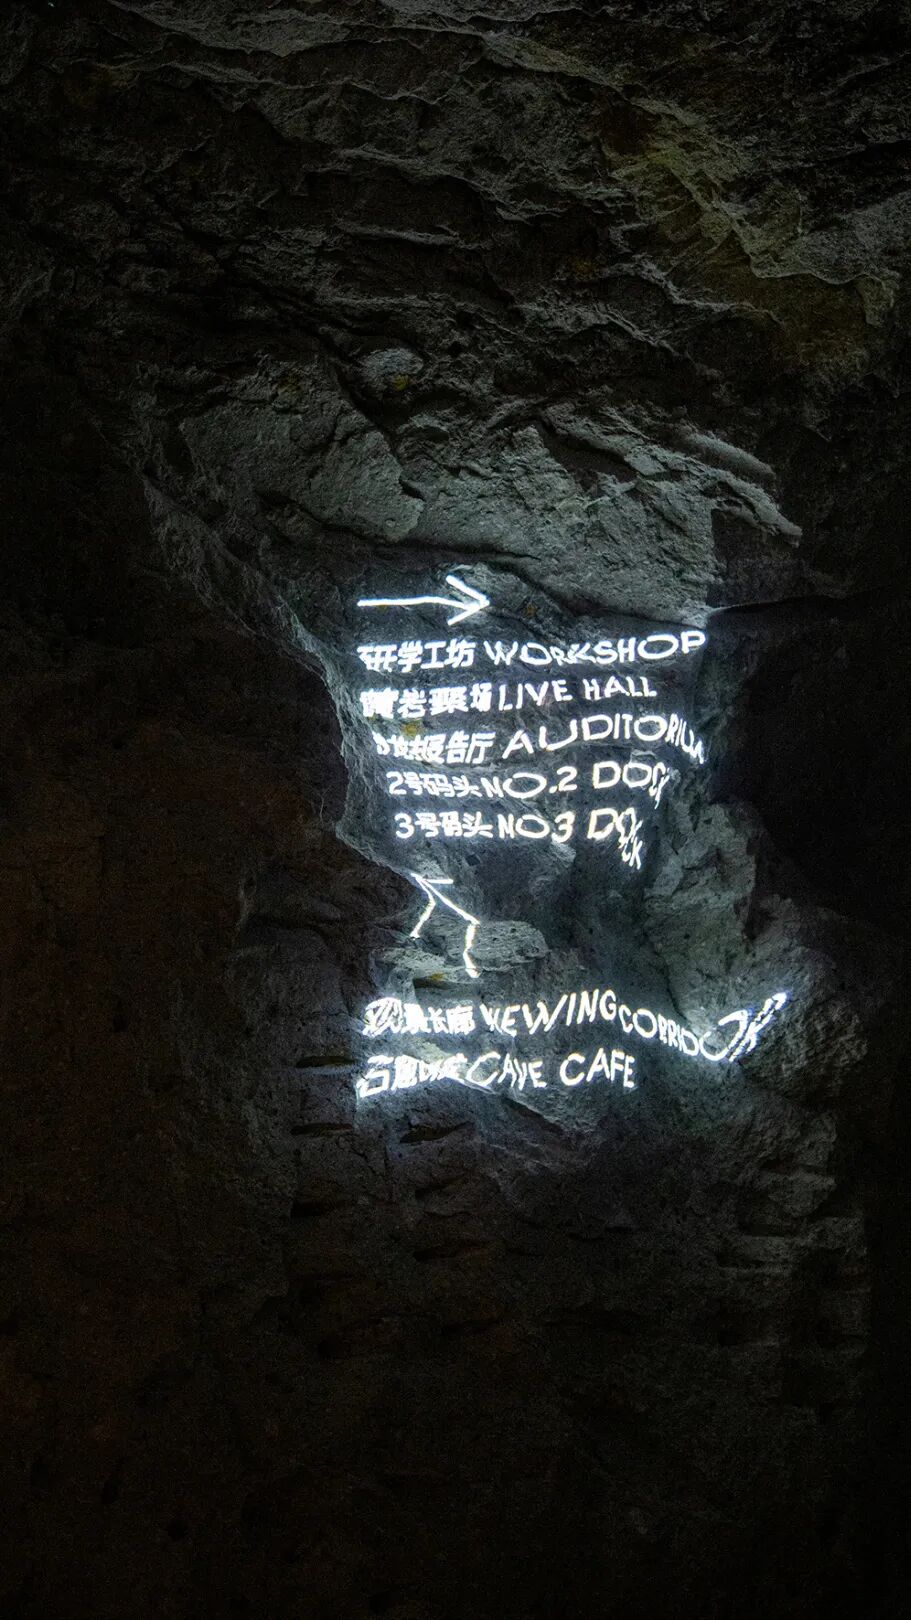 研学工坊 WORKSHOP
岩聚场 LIVE HALL
报告厅 AUDITORIUM
2号码头 NO.2 DOCK
3号码头 NO3 DOCK
长廊 VIEWING CORRIDOR
CAVE CAFE